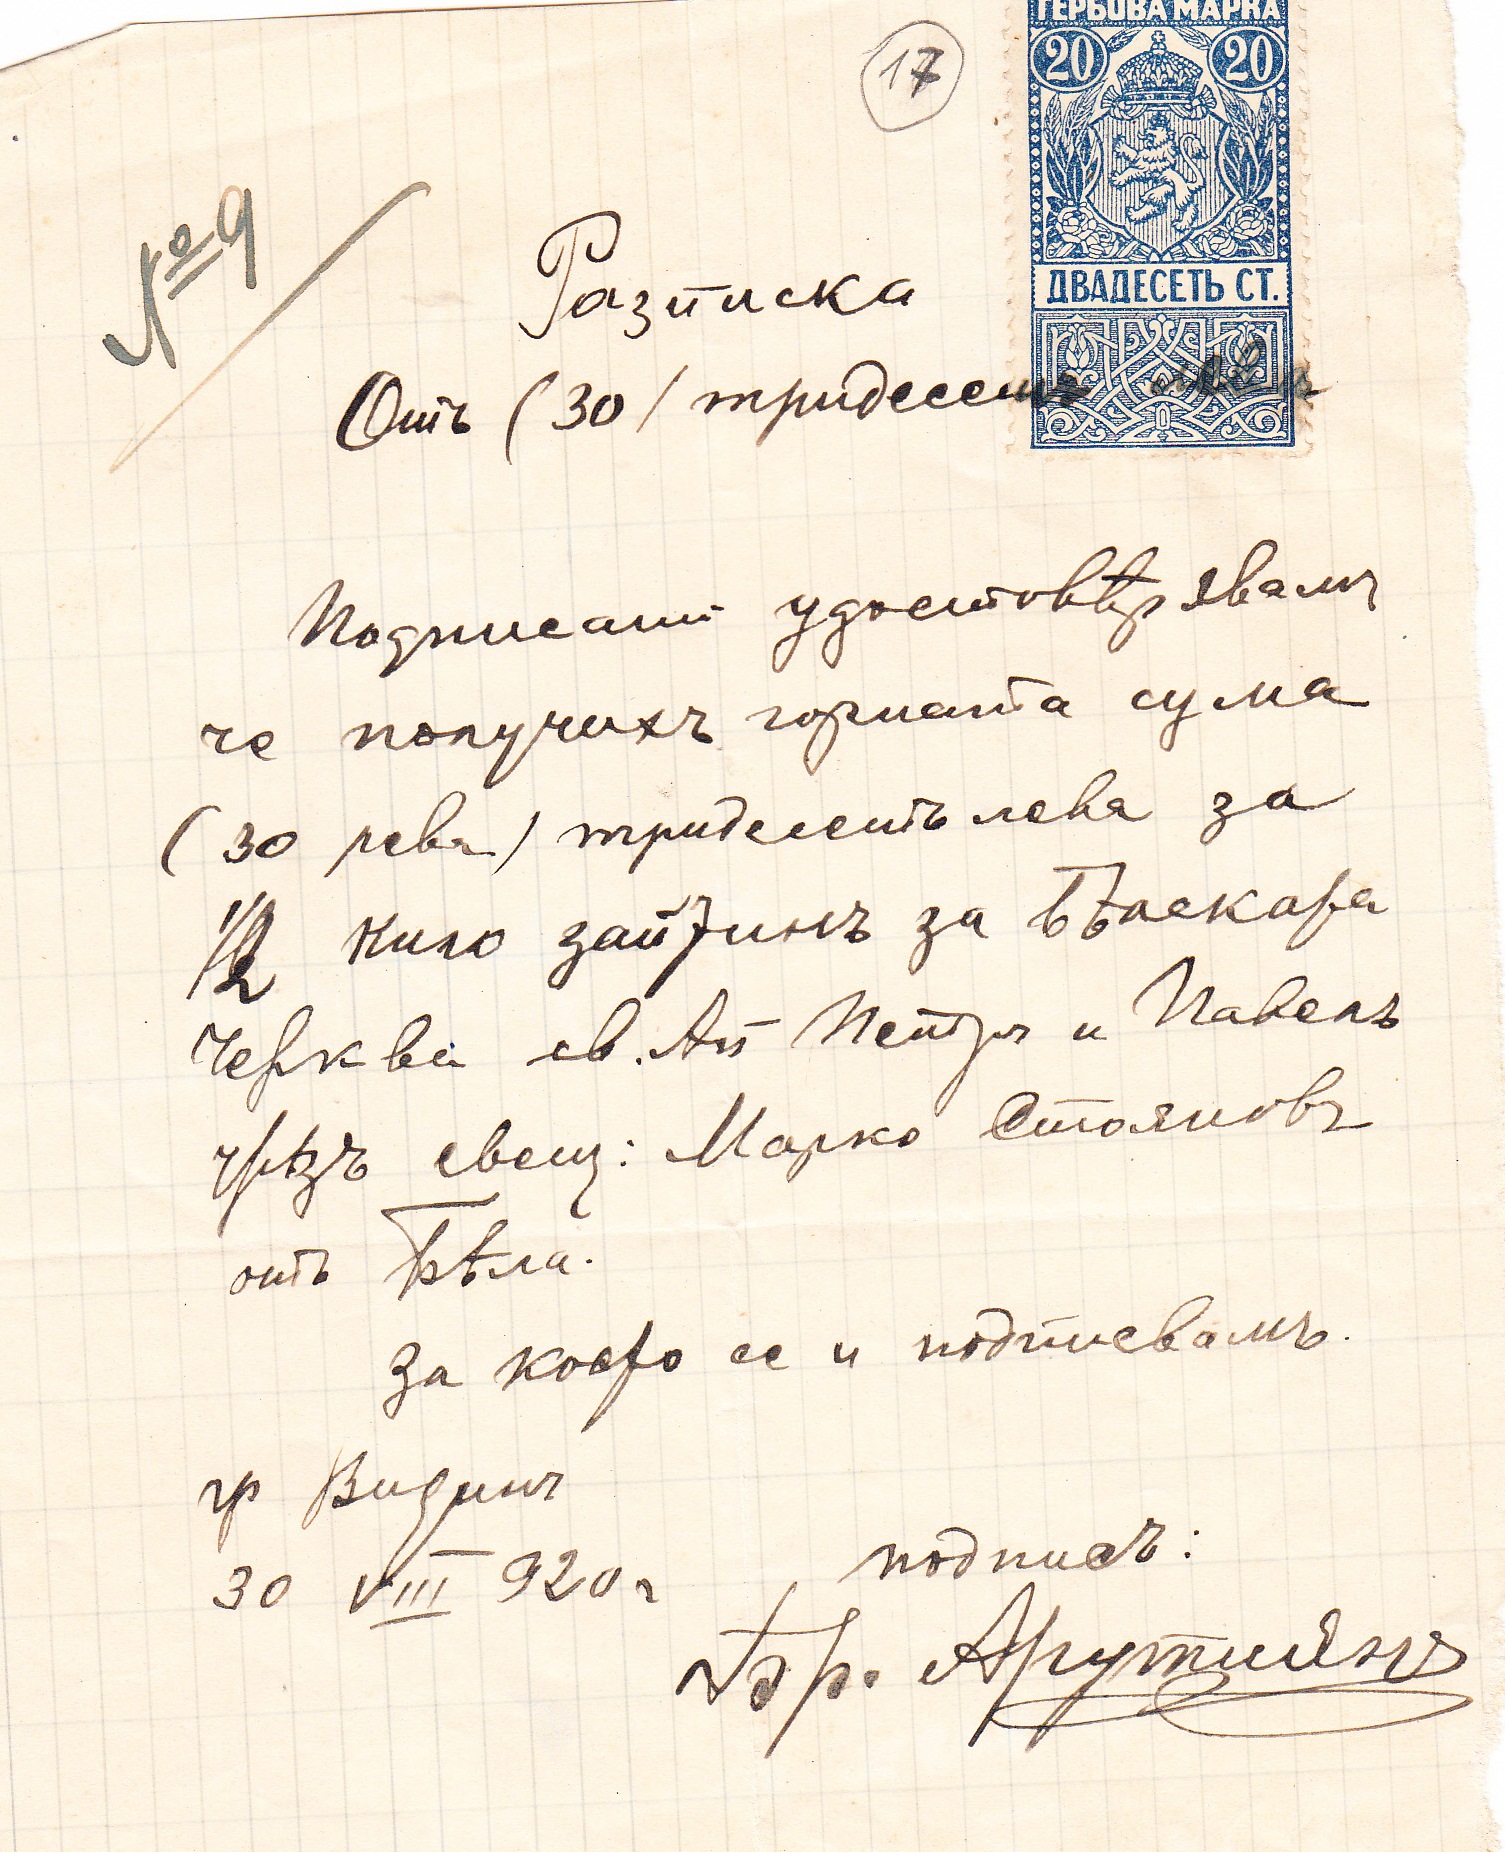 ГЕРБОВА МАРКА
17
20 20
№ 9
ДВАДЕСЕТЬ СТ.
Разписка
Отъ (30/ тридесеть лева
Подписани удостовѣрявамъ
че получихъ горната сума
(30 лева) тридесеть лева за
1/2 кило за
черква св. Ап Петръ и Павелъ
чрѣзъ свещ: Марко Стояновъ
отъ Бѣла.
за което се и подписвамъ.
гр Видинъ
30 VIII 920 г
подписъ:
Бр. Арутиянъ